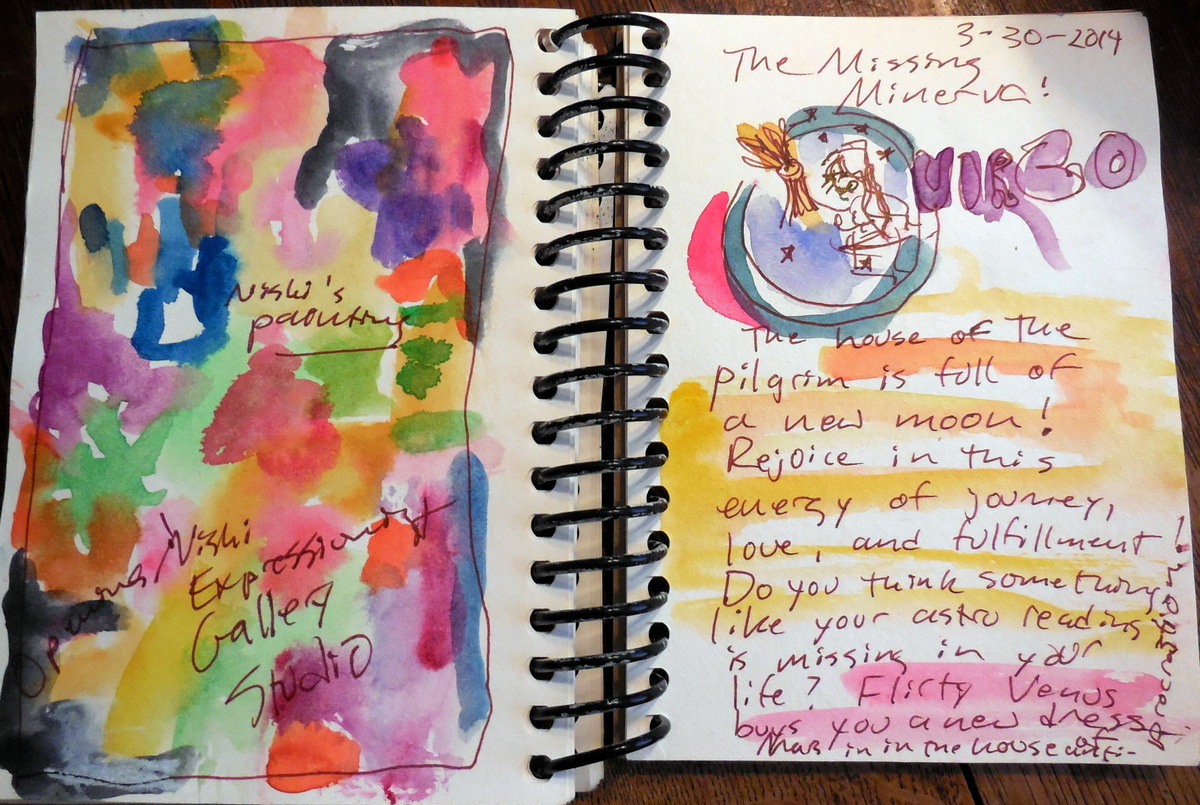 Nishi's
painting
Nishi
Expressionist
Gallery
Studio
3-30-2014
The Missing
Minerva!
VIRGO
The house of the
pilgrim is full of
a new moon!
Rejoice in this
energy of journey,
love, and fulfillment!
Do you think something
like your astro reading
is missing in your
life? Flirty Venus
buys you a new dress
Mars in in the house of